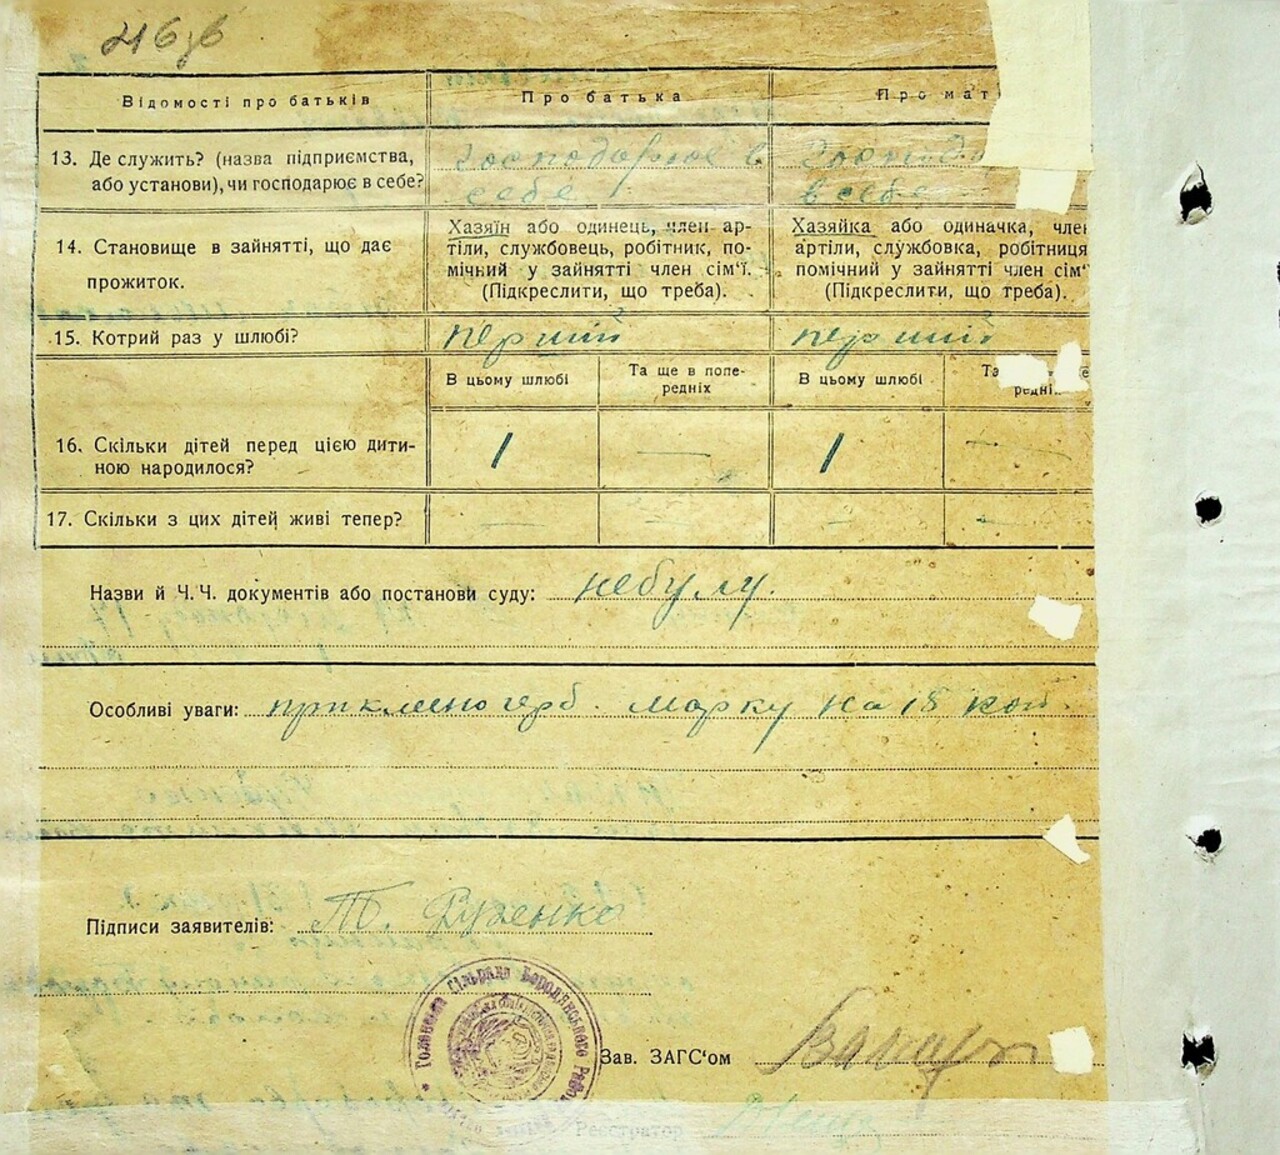 Відомості про батьків
Про батька
Про мат
13. Де служить? (назва підприємства,
або установи), чи господарює в себе?
господарює в
себе
господ
в себе
14. Становище в зайнятті, що дає
прожиток.
Хазяїн або одинець, член ар-
тіли, службовець, робітник, по-
мічний у зайнятті член сім'ї.
(Підкреслити, що треба).
Хазяйка або одиначка, член
артіли, службовка, робітниця
помічний у зайнятті член сім'
(Підкреслити, що треба).
15. Котрий раз у шлюбі?
перший
перший
В цьому шлюбі
Та ще в попе-
редніх
В цьому шлюбі
Та е
редніх
16. Скільки дітей перед цією дити-
ною народилося?
1
—
1
—
17. Скільки з цих дітей живі тепер?
—
—
—
—
Назви й Ч.Ч. документів або постанови суду: небулу.
Особливі уваги: приклено герб. марку на 15 коп.
Підписи заявителів:
Сільрада Бородянського
Зав. ЗАГС'ом
Реєстратор